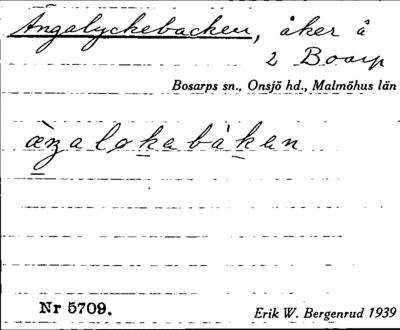 Ängalyckebacken, åker å
2 Bosarp
Bosarps sn., Onsjö hd., Malmöhus län
Nr 5709.
Erik W. Bergenrud 1939